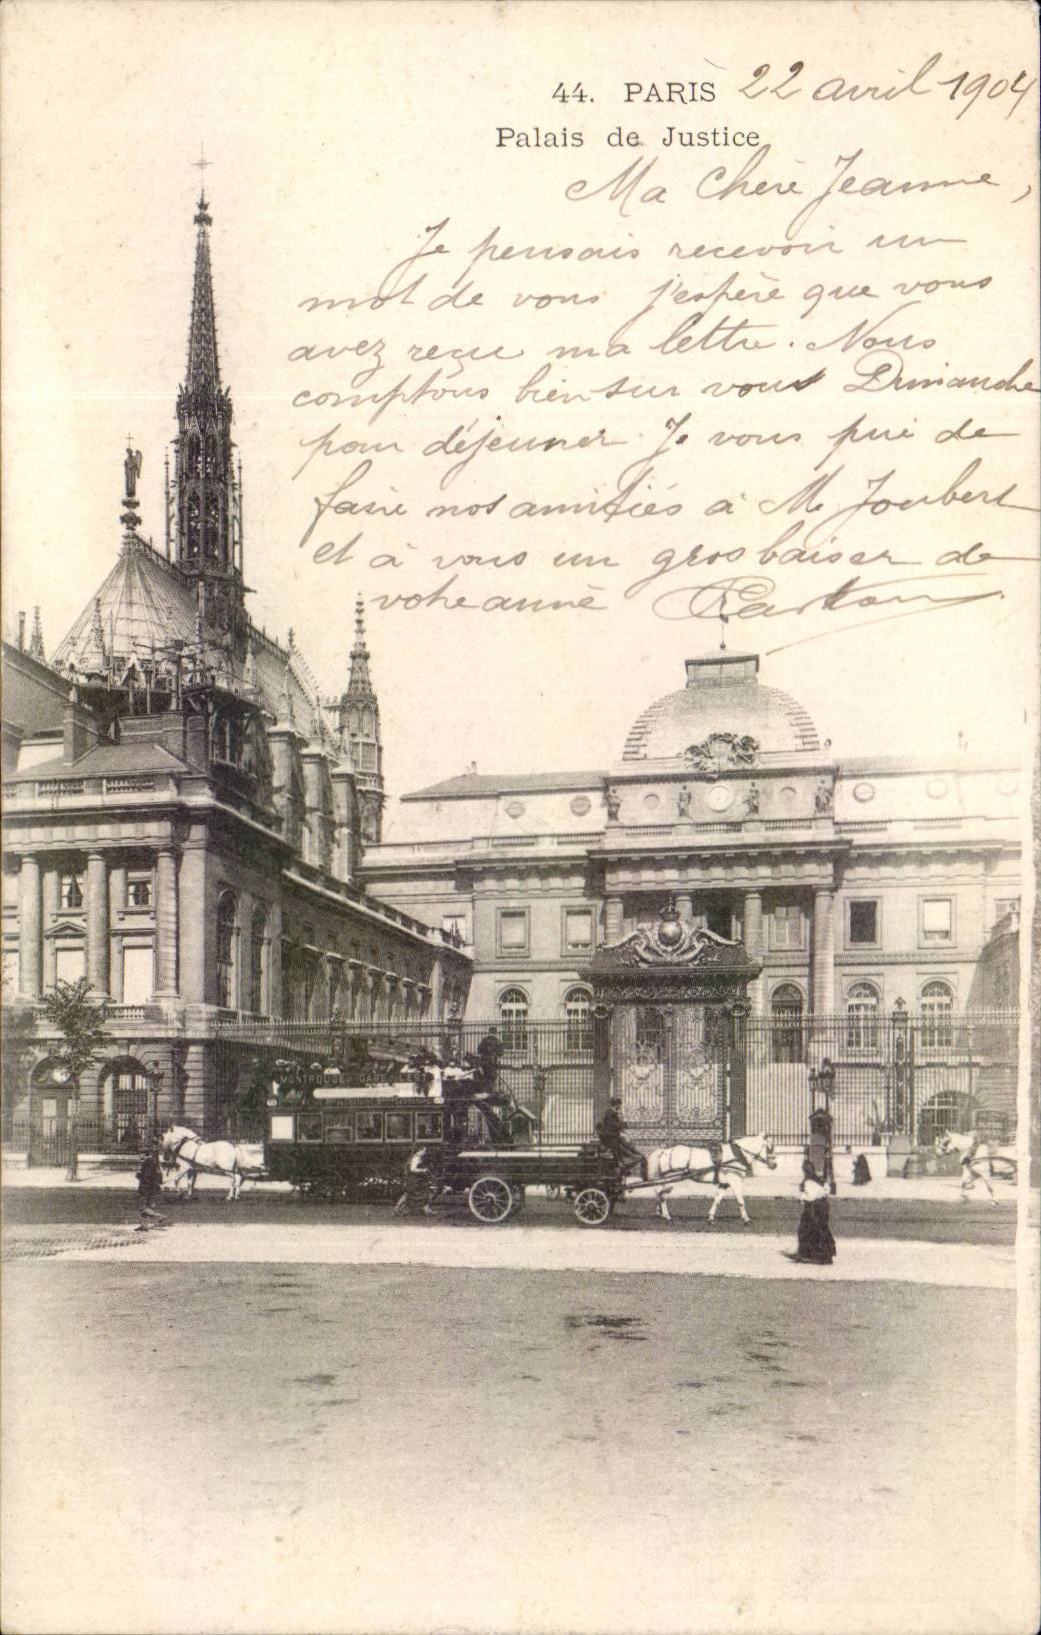 44. PARIS 22 avril 1904
Palais de Justice
Ma Chère Jeanne,
Je pensais recevoir un
mot de vous j'espère que vous
avez reçu ma lettre. Nous
comptons bien sur vous Dimanche
pour déjeuner. Je vous prie de
faire nos amitiés à M. Joubert
et à vous un gros baiser de
votre amie
MONTROUGE GARE DE L'EST